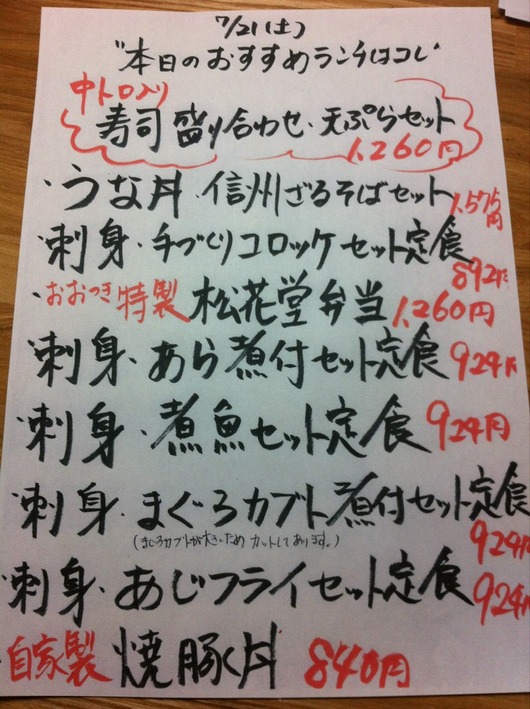 7/21(土)
"本日のおすすめランチはコレ"
中トロ入り
寿司盛り合わせ・天ぷらセット
1,260円
・うな丼・信州ざるそばセット 1,575円
・刺身・手づくりコロッケセット定食 892円
・おおつき特製 松花堂弁当 1,260円
・刺身・あら煮付セット定食 924円
・刺身・煮魚セット定食 924円
・刺身・まぐろカブト煮付セット定食
(まぐろカブトが大きいため カットしてあります。)
924円
・刺身・あじフライセット定食 924円
・自家製 焼豚丼 840円